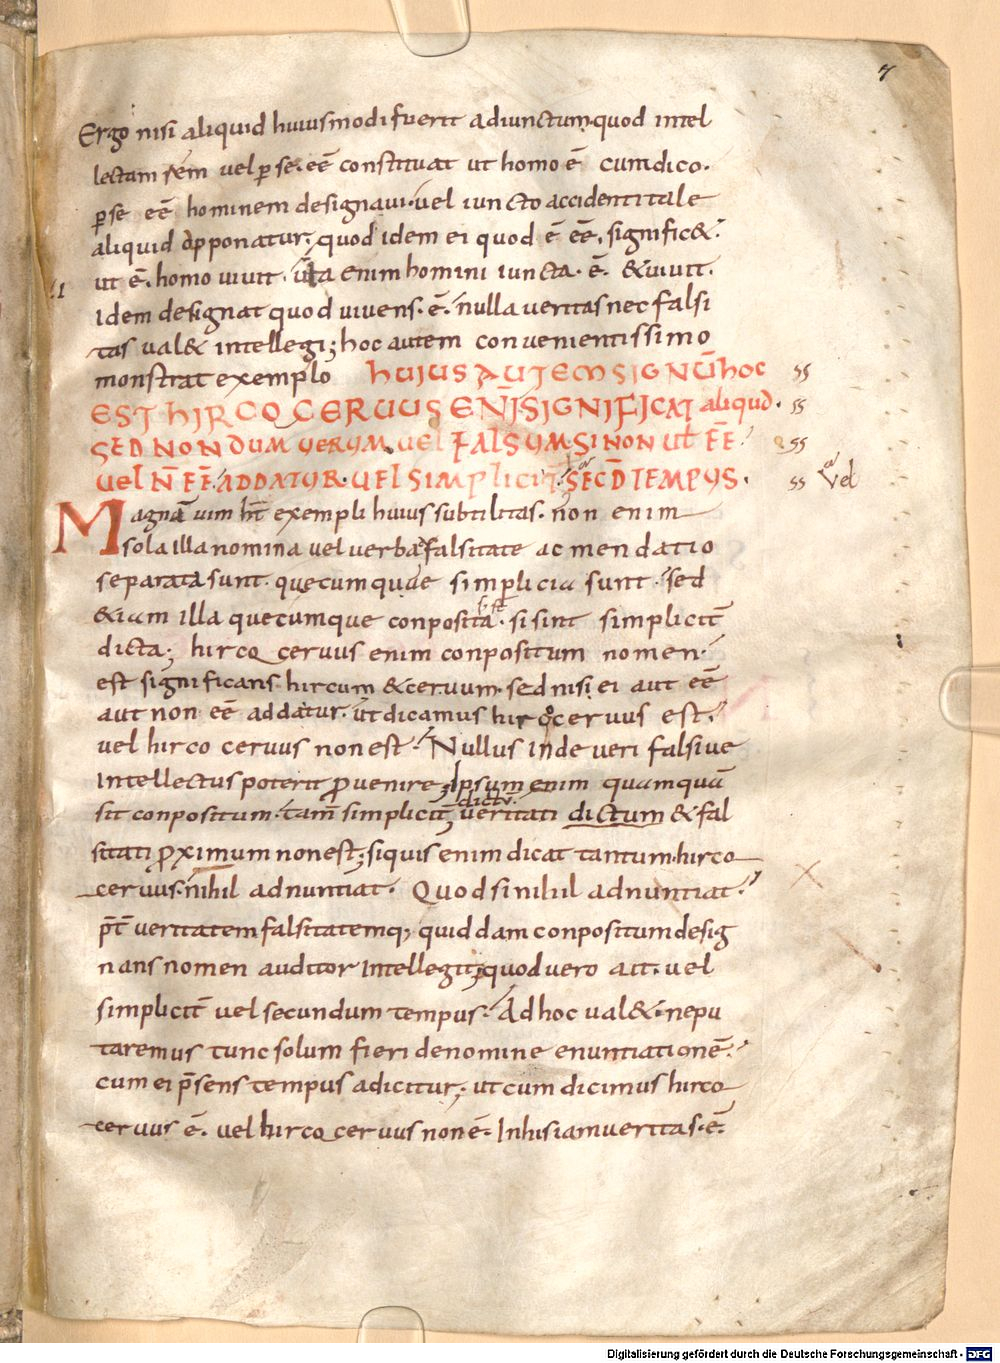 7
Ergo nisi aliquid huiusmodi fuerit adiunctum quod intel
lectam rem vel ꝑ se. eē constituat ut homo ē cum dico.
ꝑse eē hominem designavi. vel iuncto accidentitale
aliquid opponatur, quod idem ei quod ē eē. signific&.
ut ē. homo vivit. ita enim homini iuncta. ē. &vivit.
idem designat quod vivens. ē. nulla veritas nec falsi
tas val& intellegi; hoc autem convenientissimo
monstrat exemplo HUIUS AUTEM SIGNŪ hoc
EST HIRCOCERUUS ENI SIGNIFICAT aliquid.
SED NON DUM UERUM uel FALSUM SI NON UT ĒE
uel N̄ ĒE ADDATUR. UEL SIMPLICIT̄ SECD̄ TEMPUS.
vel
Magnā vim ht̄ exempli huius subtilitas. non enim
sola illa nomina vel verba falsitate ac mendatio
separata sunt. quęcumquae simplicia sunt. sed
&iam illa quecumque conposita. si sint simplicit̄
dicta; hircocervus enim conpositum nomen.
est significans hircum &cervum. sed nisi ei aut eē
aut non eē addatur. ut dicamus hircocervus est.
vel hirco cervus non est. Nullus inde veri falsive
Intellectus poterit ꝓvenire; Ipsum enim quamquā
sit conpositum. tam̄ simplicit̄ veritati dictum & fal
dictū.
sitati ꝓximum non est; siquis enim dicat tantum. hirco
cervus. nihil adnuntiat. Quod si nihil adnuntiat.
p̄t̄ veritatem falsitatemq; quid dam conpositum desig
nans nomen auditor Intellegit; quod vero ait. vel
simplicit̄ vel secundum tempus. Ad hoc val&. ne pu
taremus tunc solum fieri de nomine enuntiationē.
cum ei p̄sens tempus adicitur; ut cum dicimus hirco
cervus ē. vel hircocervus non ē. In his iam veritas. ē.
Digitalisierung gefördert durch die Deutsche Forschungsgemeinschaft - DFG